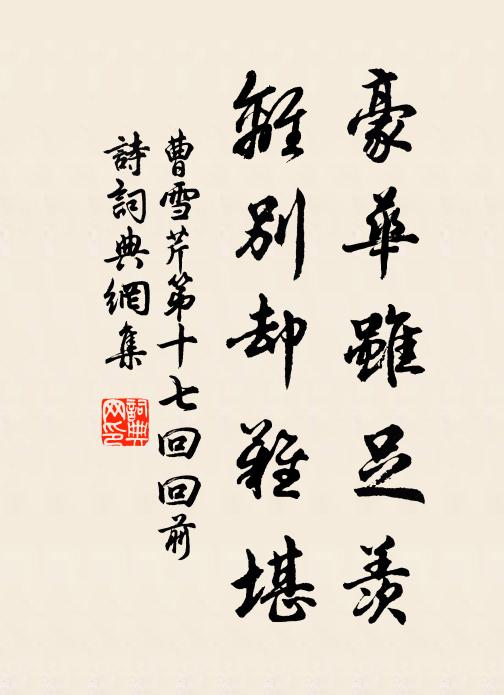 豪華雖足羨
離別却難堪
曹雪芹第十七回回前
詩詞典網集
詞典
网印